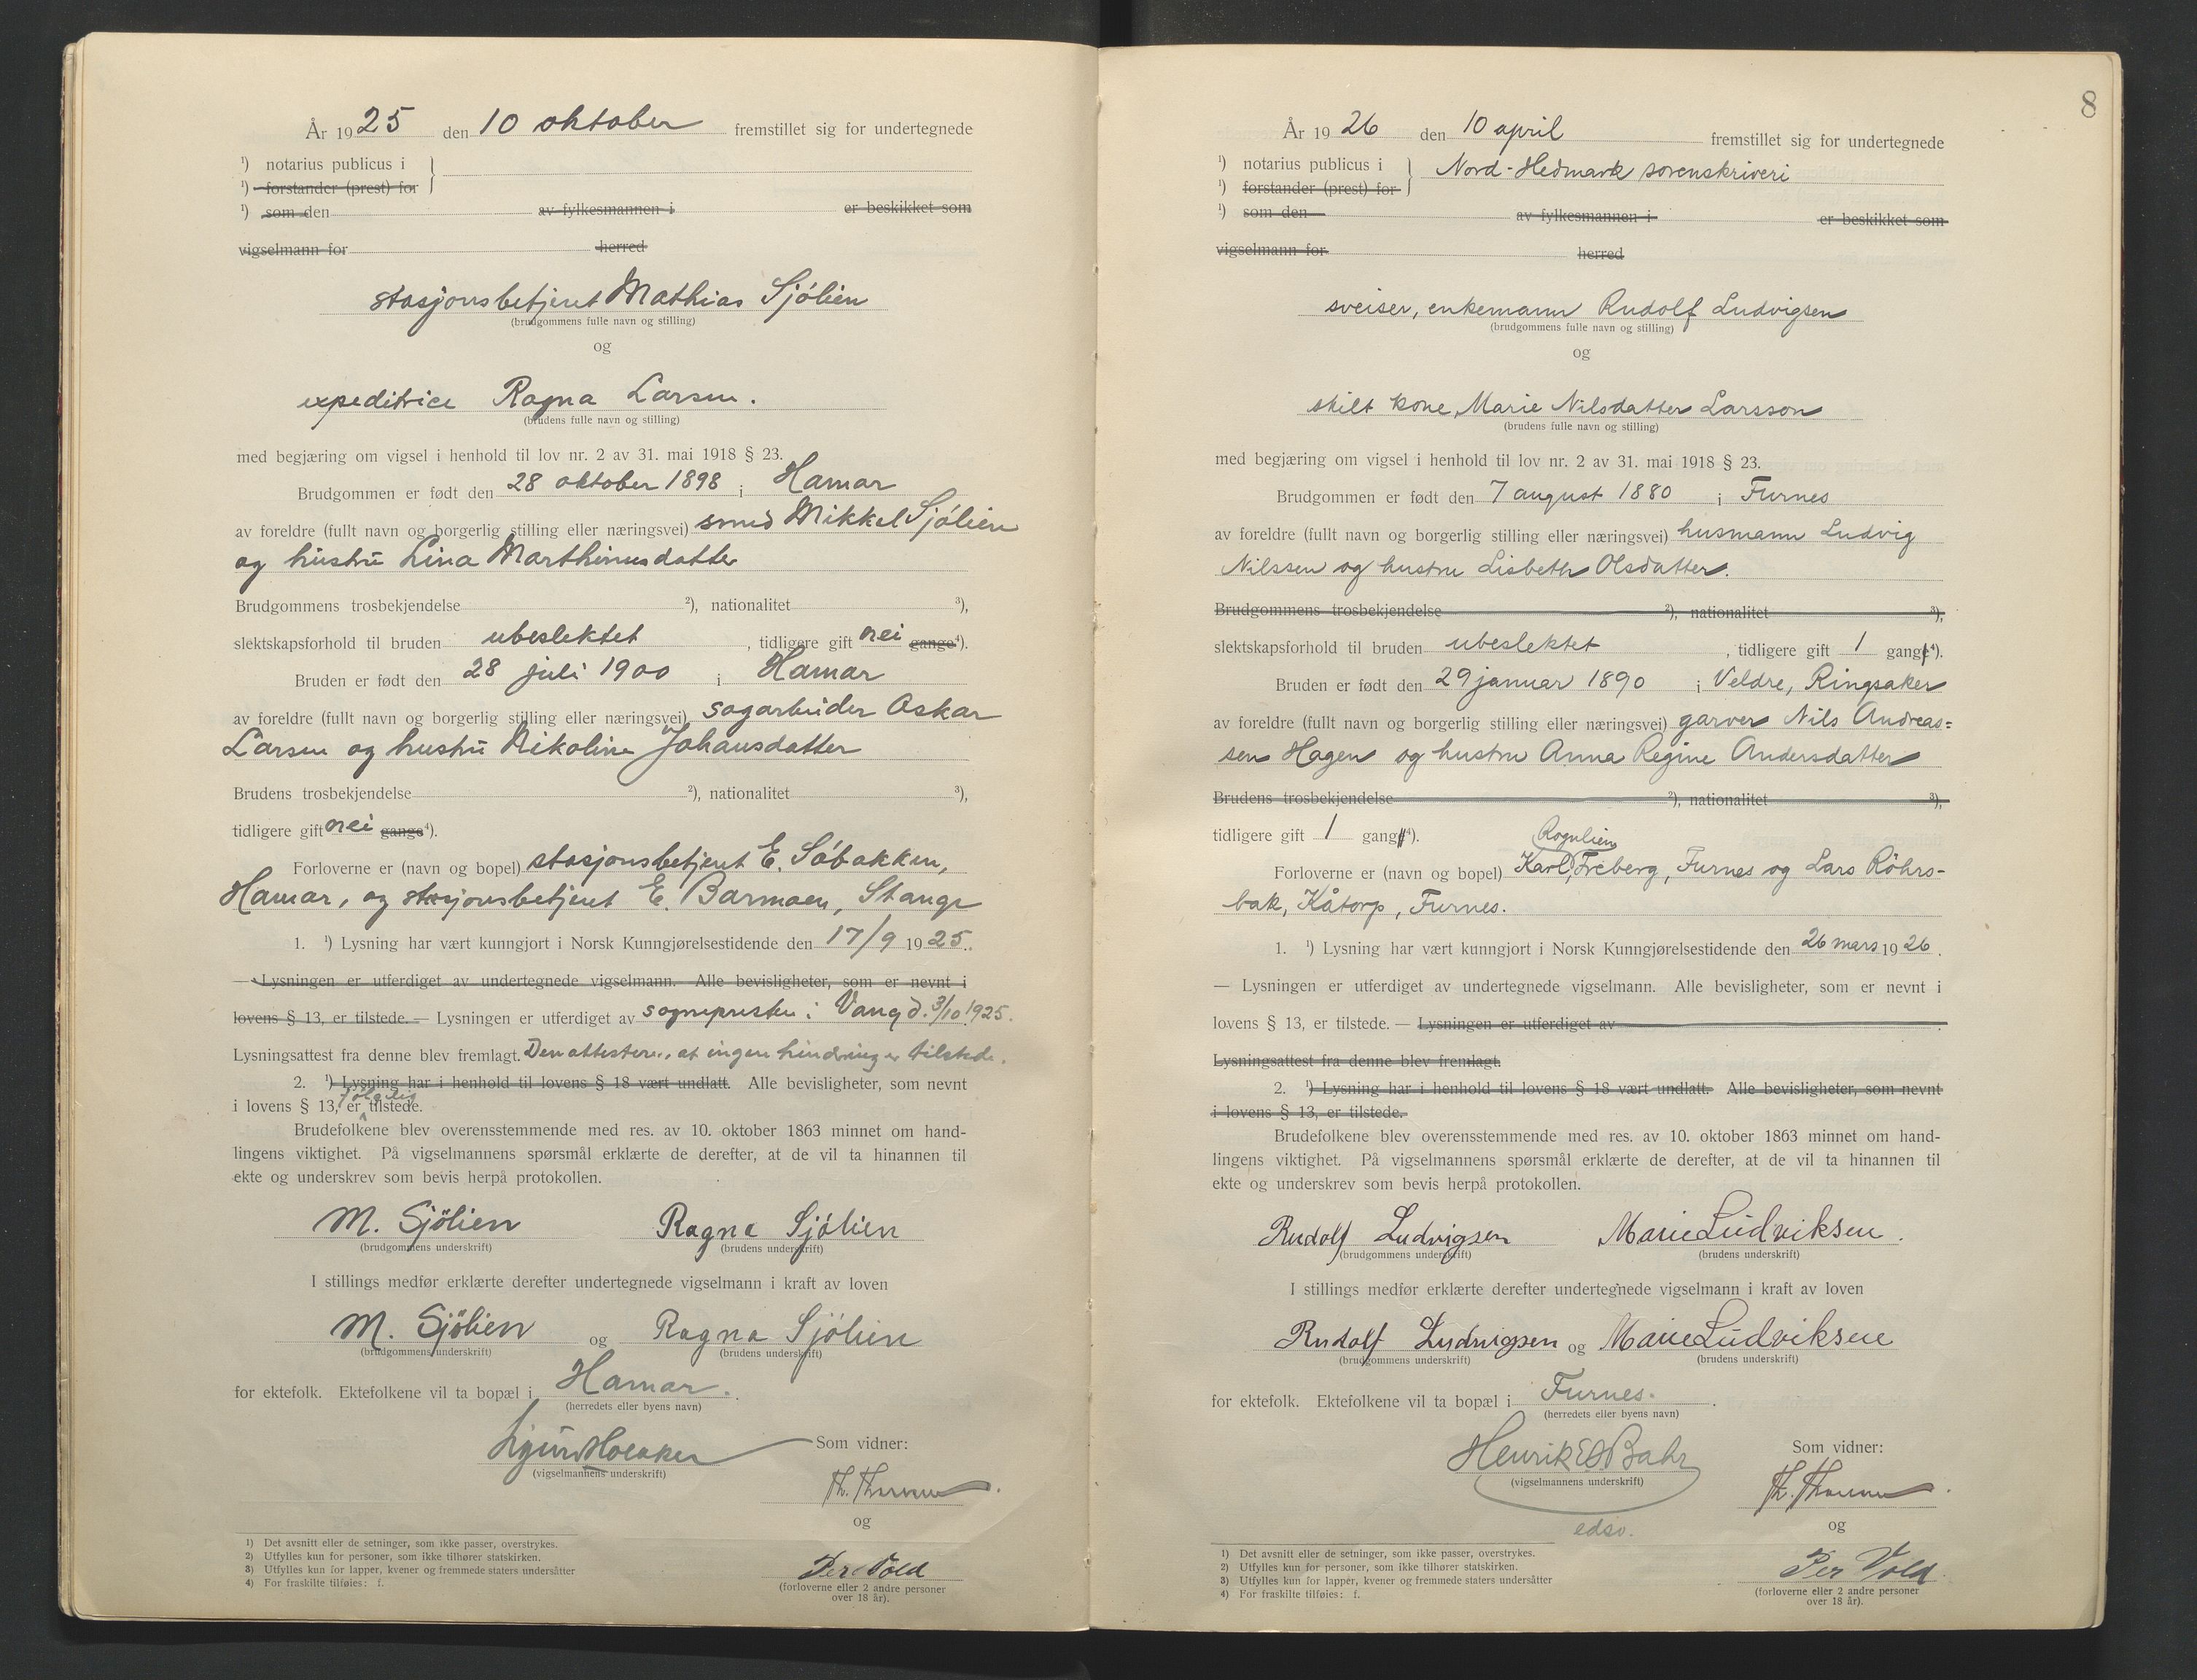 År 1925 den 10 oktober fremstillet sig for undertegnede
¹) notarius publicus i
¹) forstander (prest) for
¹) som den av fylkesmannen i er beskikket som
vigselmann for herred
stasjonsbetjent Mathias Sjölien
(brudgommens fulle navn og stilling)
og
expeditrice Ragna Larsen.
(brudens fulle navn og stilling)
med begjæring om vigsel i henhold til lov nr. 2 av 31. mai 1918 § 23.
Brudgommen er født den 28 oktober 1898 i Hamar
av foreldre (fullt navn og borgerlig stilling eller næringsvei) smed Mikkel Sjölien
og hustru Lina Marthinusdatter
Brudgommens trosbekjendelse ²), nationalitet ³),
slektskapsforhold til bruden ubeslektet, tidligere gift nei gange⁴).
Bruden er født den 28 juli 1900 i Hamar
av foreldre (fullt navn og borgerlig stilling eller næringsvei) sagarbeider Oskar
Larsen og hustru Nikoline Johansdatter
Brudens trosbekjendelse ²), nationalitet ³),
tidligere gift nei gange⁴).
Forloverne er (navn og bopel) stasjonsbetjent E. Söbakken,
Hamar, og stasjonsbetjent E. Barmoen, Stange
1. ¹) Lysning har vært kunngjort i Norsk Kunngjørelsestidende den 17/9 1925.
— Lysningen er utferdiget av undertegnede vigselmann. Alle bevisligheter, som er nevnt i
lovens § 13, er tilstede. — Lysningen er utferdiget av sognepresten i Vang d. 3/10 1925.
Lysningsattest fra denne blev fremlagt. Den attesterer, at ingen hindring er tilstede.
2. ¹) Lysning har i henhold til lovens § 18 vært undlatt. Alle bevisligheter, som nevnt
følgelig
i lovens § 13, er tilstede.
Brudefolkene blev overensstemmende med res. av 10. oktober 1863 minnet om hand-
lingens viktighet. På vigselmannens spørsmål erklærte de derefter, at de vil ta hinannen til
ekte og underskrev som bevis herpå protokollen.
M. Sjölien Ragna Sjölien
(brudgommens underskrift) (brudens underskrift)
I stillings medfør erklærte derefter undertegnede vigselmann i kraft av loven
M. Sjölien og Ragna Sjölien
(brudgommens underskrift) (brudens underskrift)
for ektefolk. Ektefolkene vil ta bopæl i Hamar.
(herredets eller byens navn)
Som vidner:
(vigselmannens underskrift)
Th.
og
Per Vold
(forloverne eller 2 andre personer
over 18 år).
1) Det avsnitt eller de setninger, som ikke passer, overstrykes.
2) Utfylles kun for personer, som ikke tilhører statskirken.
3) Utfylles kun for lapper, kvener og fremmede staters undersåtter
4) For fraskilte tilføies: f.
8
År 1926 den 10 april fremstillet sig for undertegnede
¹) notarius publicus i Nord-Hedmark sorenskriveri
¹) forstander (prest) for
¹) som den av fylkesmannen i er beskikket som
vigselmann for herred
sveiser, enkemann Rudolf Ludvigsen
(brudgommens fulle navn og stilling)
og
skilt kone, Marie Nilsdatter Larsson
(brudens fulle navn og stilling)
med begjæring om vigsel i henhold til lov nr. 2 av 31. mai 1918 § 23.
Brudgommen er født den 7 august 1880 i Furnes
av foreldre (fullt navn og borgerlig stilling eller næringsvei) husmann Ludvig
Nilssen og hustru Lisbeth Olsdatter.
Brudgommens trosbekjendelse ²), nationalitet ³),
slektskapsforhold til bruden ubeslektet, tidligere gift 1 gange⁴).
Bruden er født den 29 januar 1890 i Veldre, Ringsaker
av foreldre (fullt navn og borgerlig stilling eller næringsvei) garver Nils Andreas=
sen Hagen og hustru Anna Regine Andersdatter
Brudens trosbekjendelse ²), nationalitet ³),
tidligere gift 1 gang⁴).
Rognlien
Forloverne er (navn og bopel) Karl, Freberg, Furnes og Lars Röhrs-
bak, Kåtorp, Furnes.
1. ¹) Lysning har vært kunngjort i Norsk Kunngjørelsestidende den 26 mars 1926.
— Lysningen er utferdiget av undertegnede vigselmann. Alle bevisligheter, som er nevnt i
lovens § 13, er tilstede. — Lysningen er utferdiget av
Lysningsattest fra denne blev fremlagt.
2. ¹) Lysning har i henhold til lovens § 18 vært undlatt. Alle bevisligheter, som nevnt
i lovens § 13, er tilstede.
Brudefolkene blev overensstemmende med res. av 10. oktober 1863 minnet om hand-
lingens viktighet. På vigselmannens spørsmål erklærte de derefter, at de vil ta hinannen til
ekte og underskrev som bevis herpå protokollen.
Rudolf Ludvigsen Marie Ludviksen.
(brudgommens underskrift) (brudens underskrift)
I stillings medfør erklærte derefter undertegnede vigselmann i kraft av loven
Rudolf Ludvigsen og Marie Ludviksen
(brudgommens underskrift) (brudens underskrift)
for ektefolk. Ektefolkene vil ta bopæl i Furnes.
(herredets eller byens navn)
Henrik Bahr Som vidner:
(vigselmannens underskrift)
Th.
edsv.
og
Per Vold
(forloverne eller 2 andre personer
over 18 år).
1) Det avsnitt eller de setninger, som ikke passer, overstrykes.
2) Utfylles kun for personer, som ikke tilhører statskirken.
3) Utfylles kun for lapper, kvener og fremmede staters undersåtter
4) For fraskilte tilføies: f.